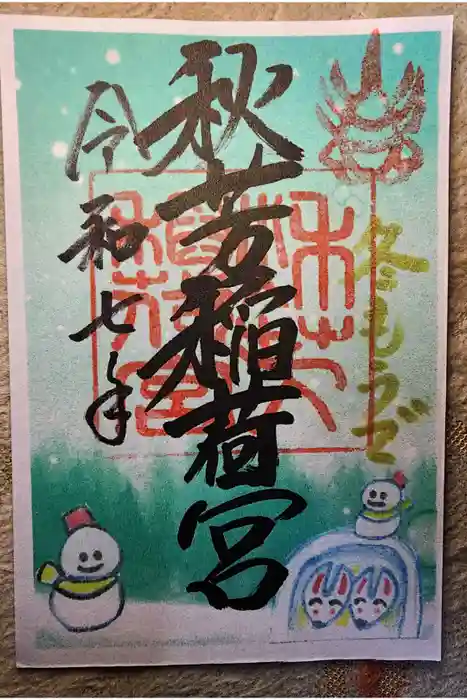 冬もうで
秋芳稲荷宮
令和七年